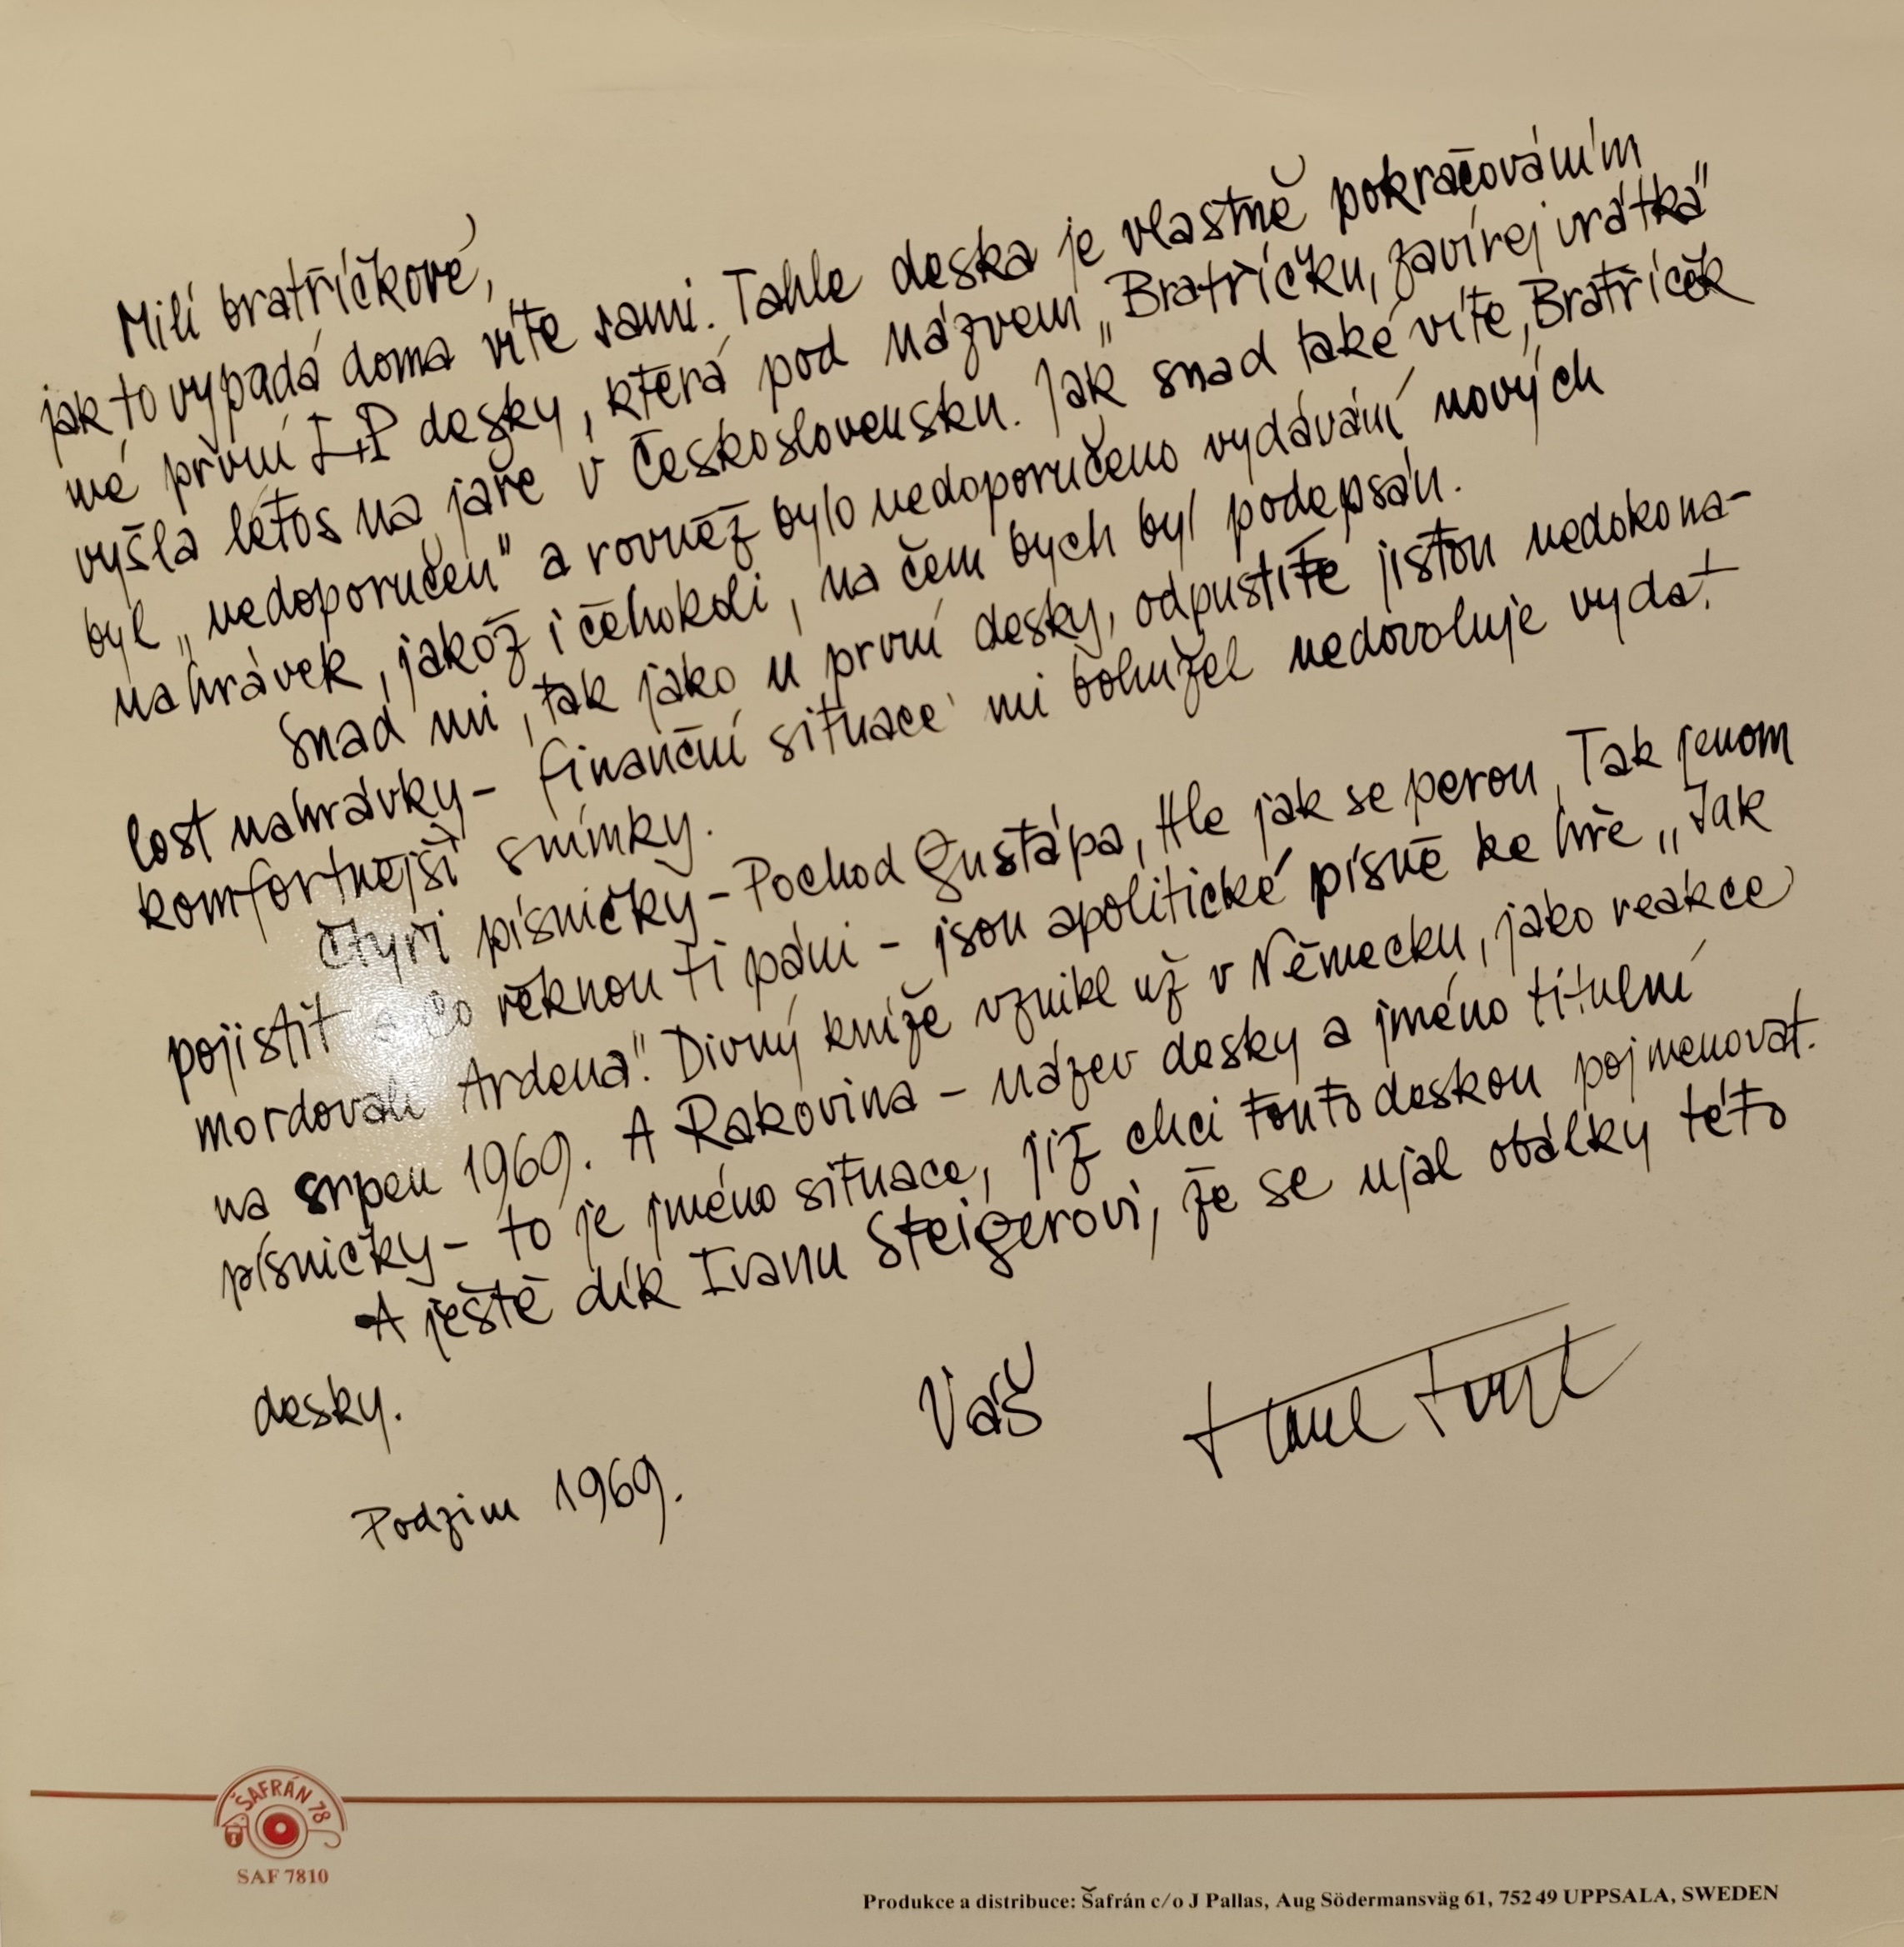 Milí bratříčkové,
jak to vypadá doma víte sami. Tahle deska je vlastně pokračováním
mé první LP desky, která pod názvem „Bratříčku, zavírej vrátka"
vyšla letos na jaře v Československu. Jak snad také víte, Bratříček
byl „nedoporučen" a rovněž bylo nedoporučeno vydávání nových
nahrávek, jakož i čehokoli, na čem bych byl podepsán.
Snad mi, tak jako u první desky, odpustíte jistou nedokona-
lost nahrávky - finanční situace mi bohužel nedovoluje vydat
komfortnější snímky.
Čtyři písničky - Pochod Gustápa, Hle jak se perou, Tak jenom
pojistit a Co řeknou ti páni - jsou apolitické písně ke hře „Jak
mordovali Ardena". Divný kníže vznikl už v Německu, jako reakce
na srpen 1969. A Rakovina - název desky a jméno titulní
písničky - to je jméno situace, jíž chci touto deskou pojmenovat.
A ještě dík Ivanu Steigerovi, že se ujal obálky této
desky.
Váš Karel Kryl
Podzim 1969.
ŠAFRÁN 78
SAF 7810
Produkce a distribuce: Šafrán c/o J Pallas, Aug Södermansväg 61, 752 49 UPPSALA, SWEDEN